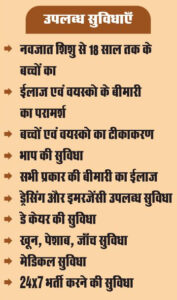 उपलब्ध सुविधाएँ
नवजात शिशु से 18 साल तक के
बच्चों का
ईलाज एवं वयस्को के बीमारी
का परामर्श
बच्चों एवं वयस्को का टीकाकरण
भाप की सुविधा
सभी प्रकार की बीमारी का ईलाज
ड्रेसिंग और इमरजेंसी उपलब्ध सुविधा
डे केयर की सुविधा
खून, पेशाब, जाँच सुविधा
मेडिकल सुविधा
24x7 भर्ती करने की सुविधा